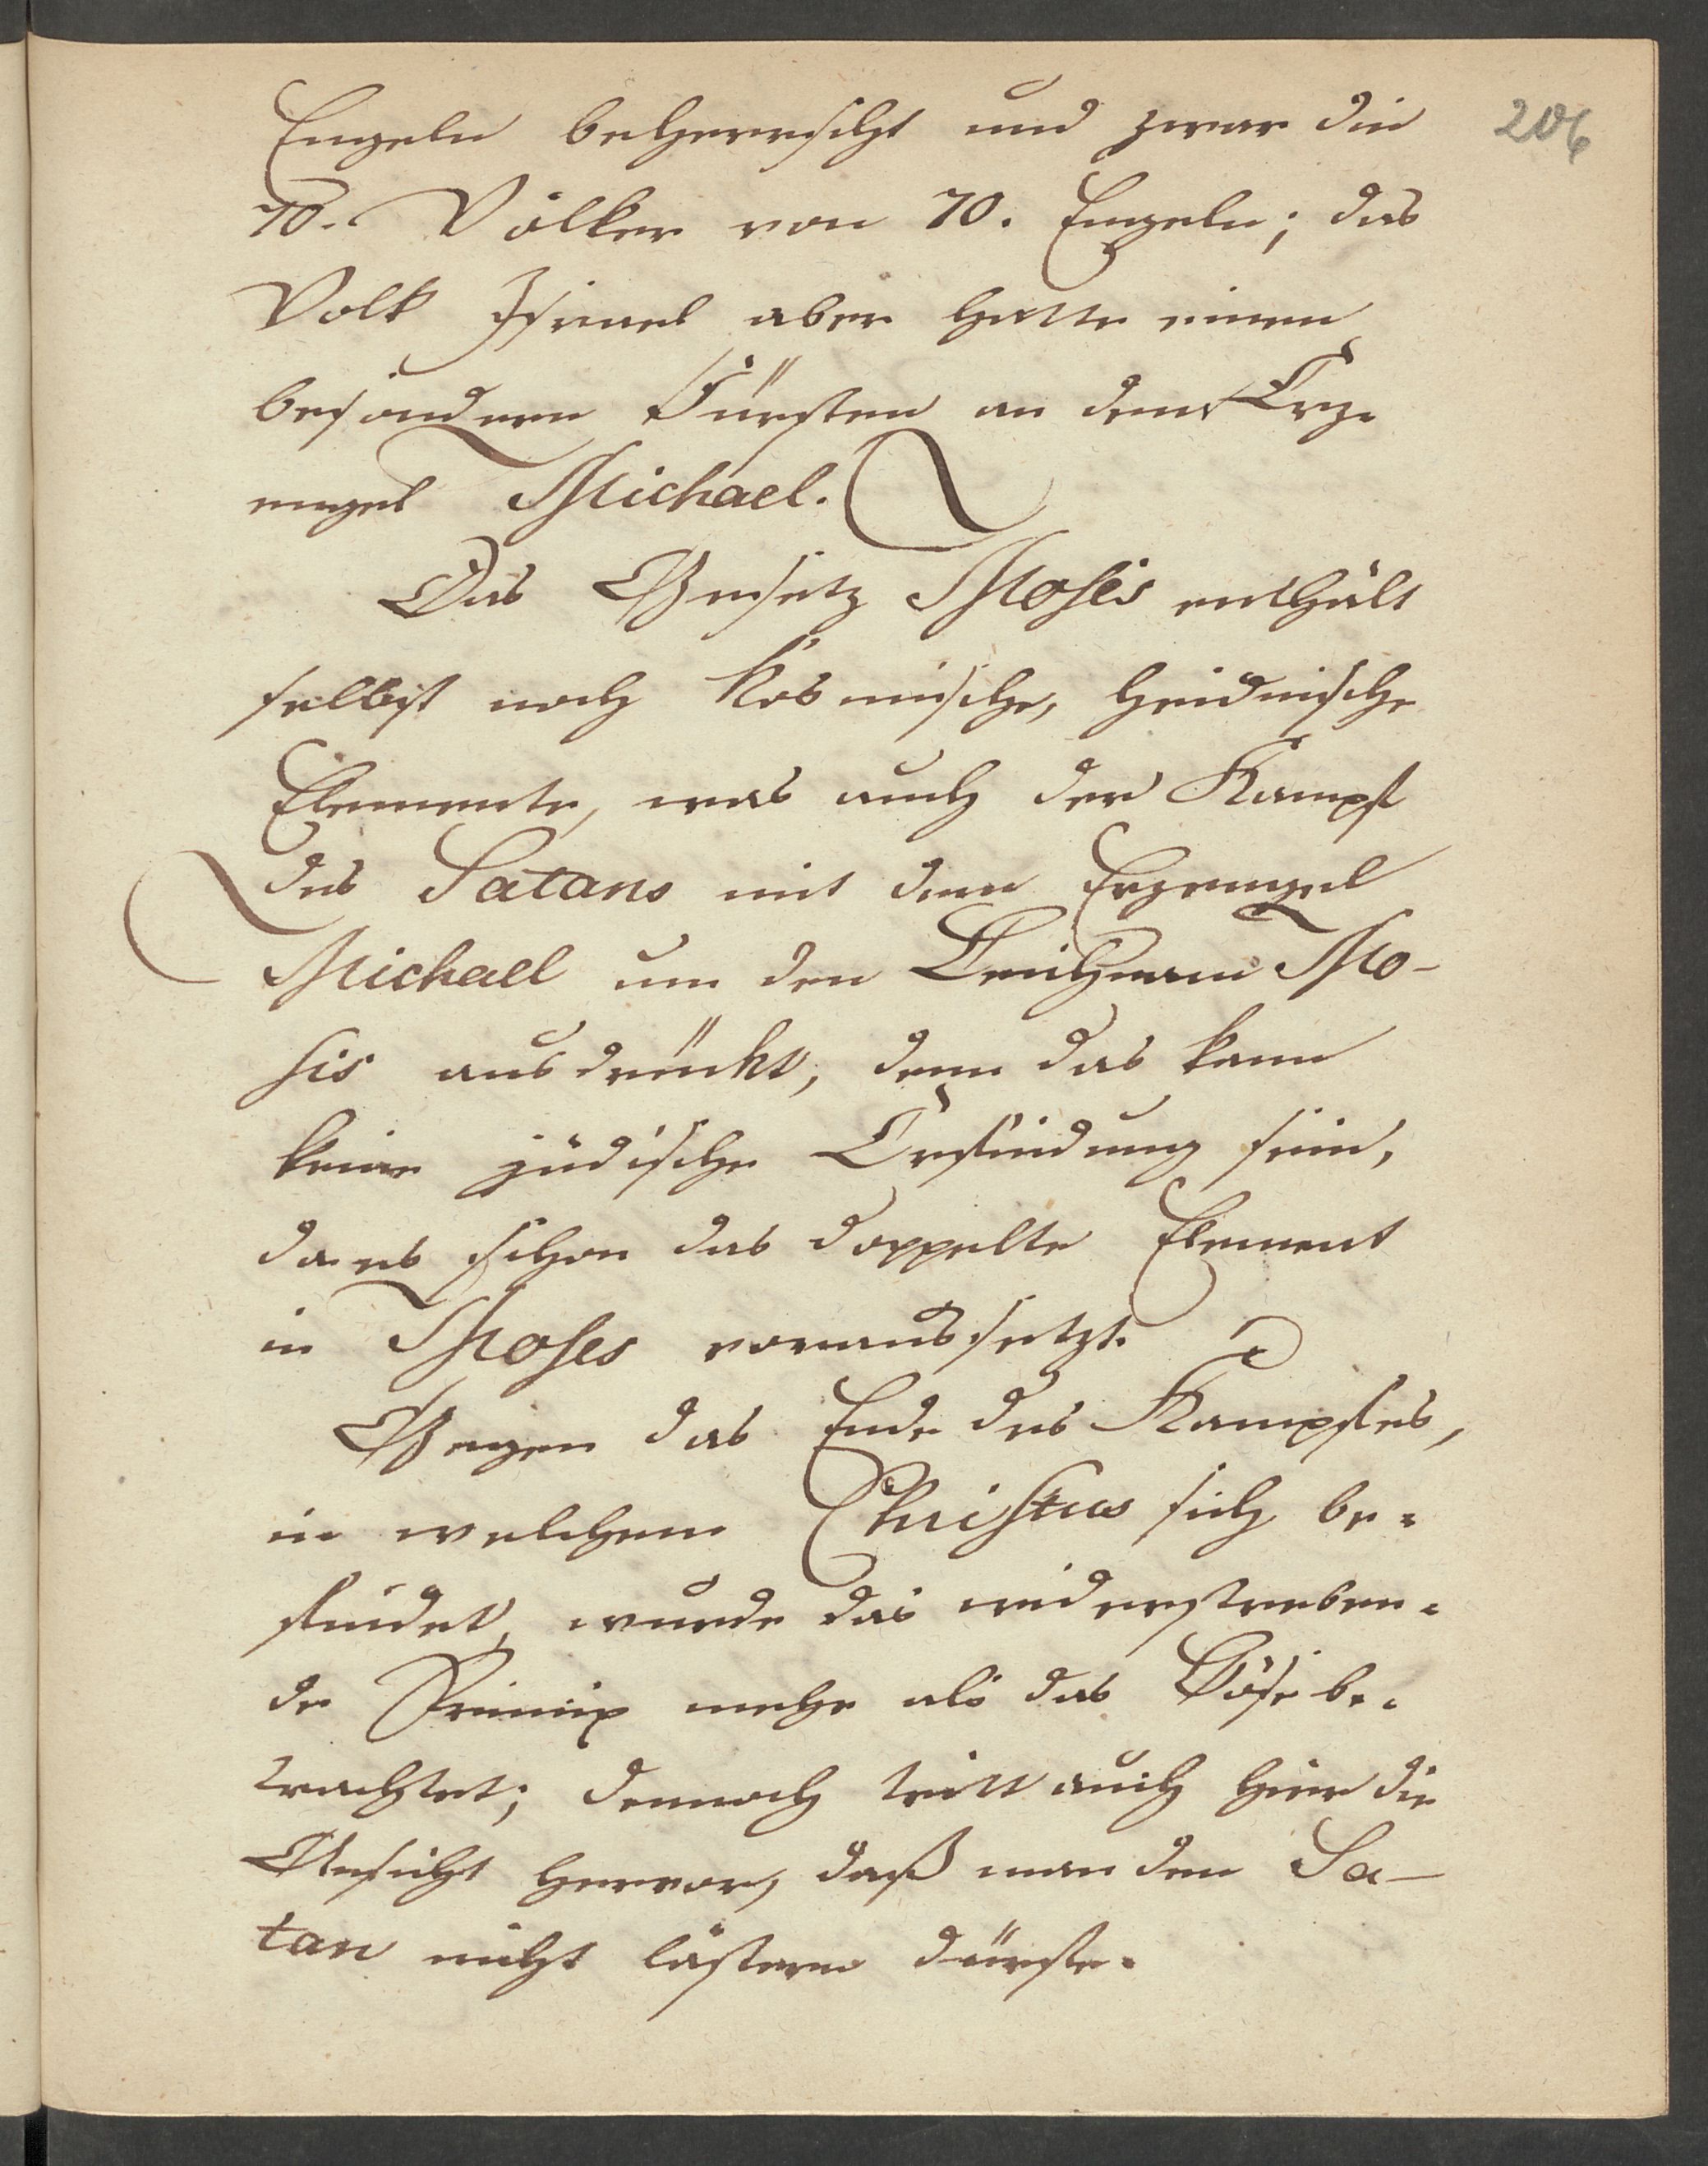 206
Engeln beherrscht und zwar die
70. Völker von 70. Engeln; das
Volk Israel aber hatte einen
besondern Fürsten an dem Erz-
engel Michael.
Das Gesetz Mosis enthält
selbst noch kosmische, heidnische
Elemente, was auch der Kampf
des Satans mit dem Erzengel
Michael um den Leichnam Mo-
sis ausdrückt, denn das kann
keine jüdische Erfindung sein,
da es schon das doppelte Element
in Moses voraussetzt.
Gegen das Ende des Kampfes,
in welchem Christus sich be-
findet, wurde das widerstreben-
de Prinzip mehr als das Böse be-
trachtet; dennoch tritt auch hier die
Ansicht hervor, daß man den Sa-
tan nicht lästern dürfe.